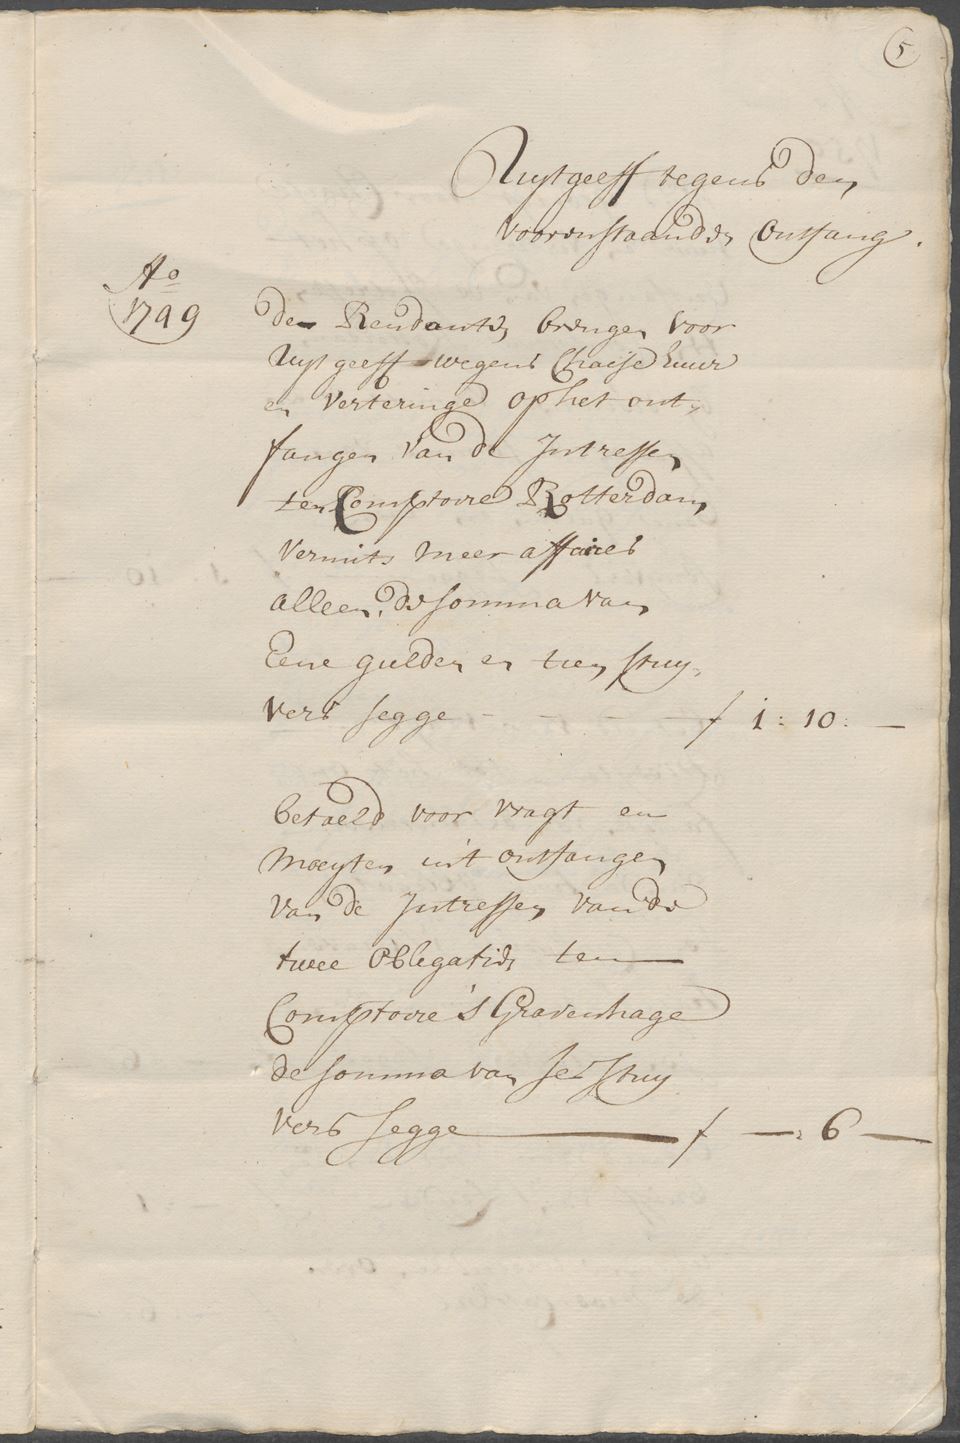 5
Uytgeeff tegens den
voorenstaanden Ontfang.
Ao
1749
den Rendanten brengen voor
Uytgeeff wegens Chaise huur
en verteringe op het ont,
fangen van de Intressen
ten Comptoire Rotterdam,
vermits meer affaires
alleen, de somma van
Eene gulden en tien stuy,
vers segge - - - - f 1 : 10 : —
betaeld voor vragt en
moeyten uit ontfangen
van de Intressen van de
twee Oblegatien ten
Comptoire 's Gravenhage
de somma van ses stuy
vers segge — f — : 6 —